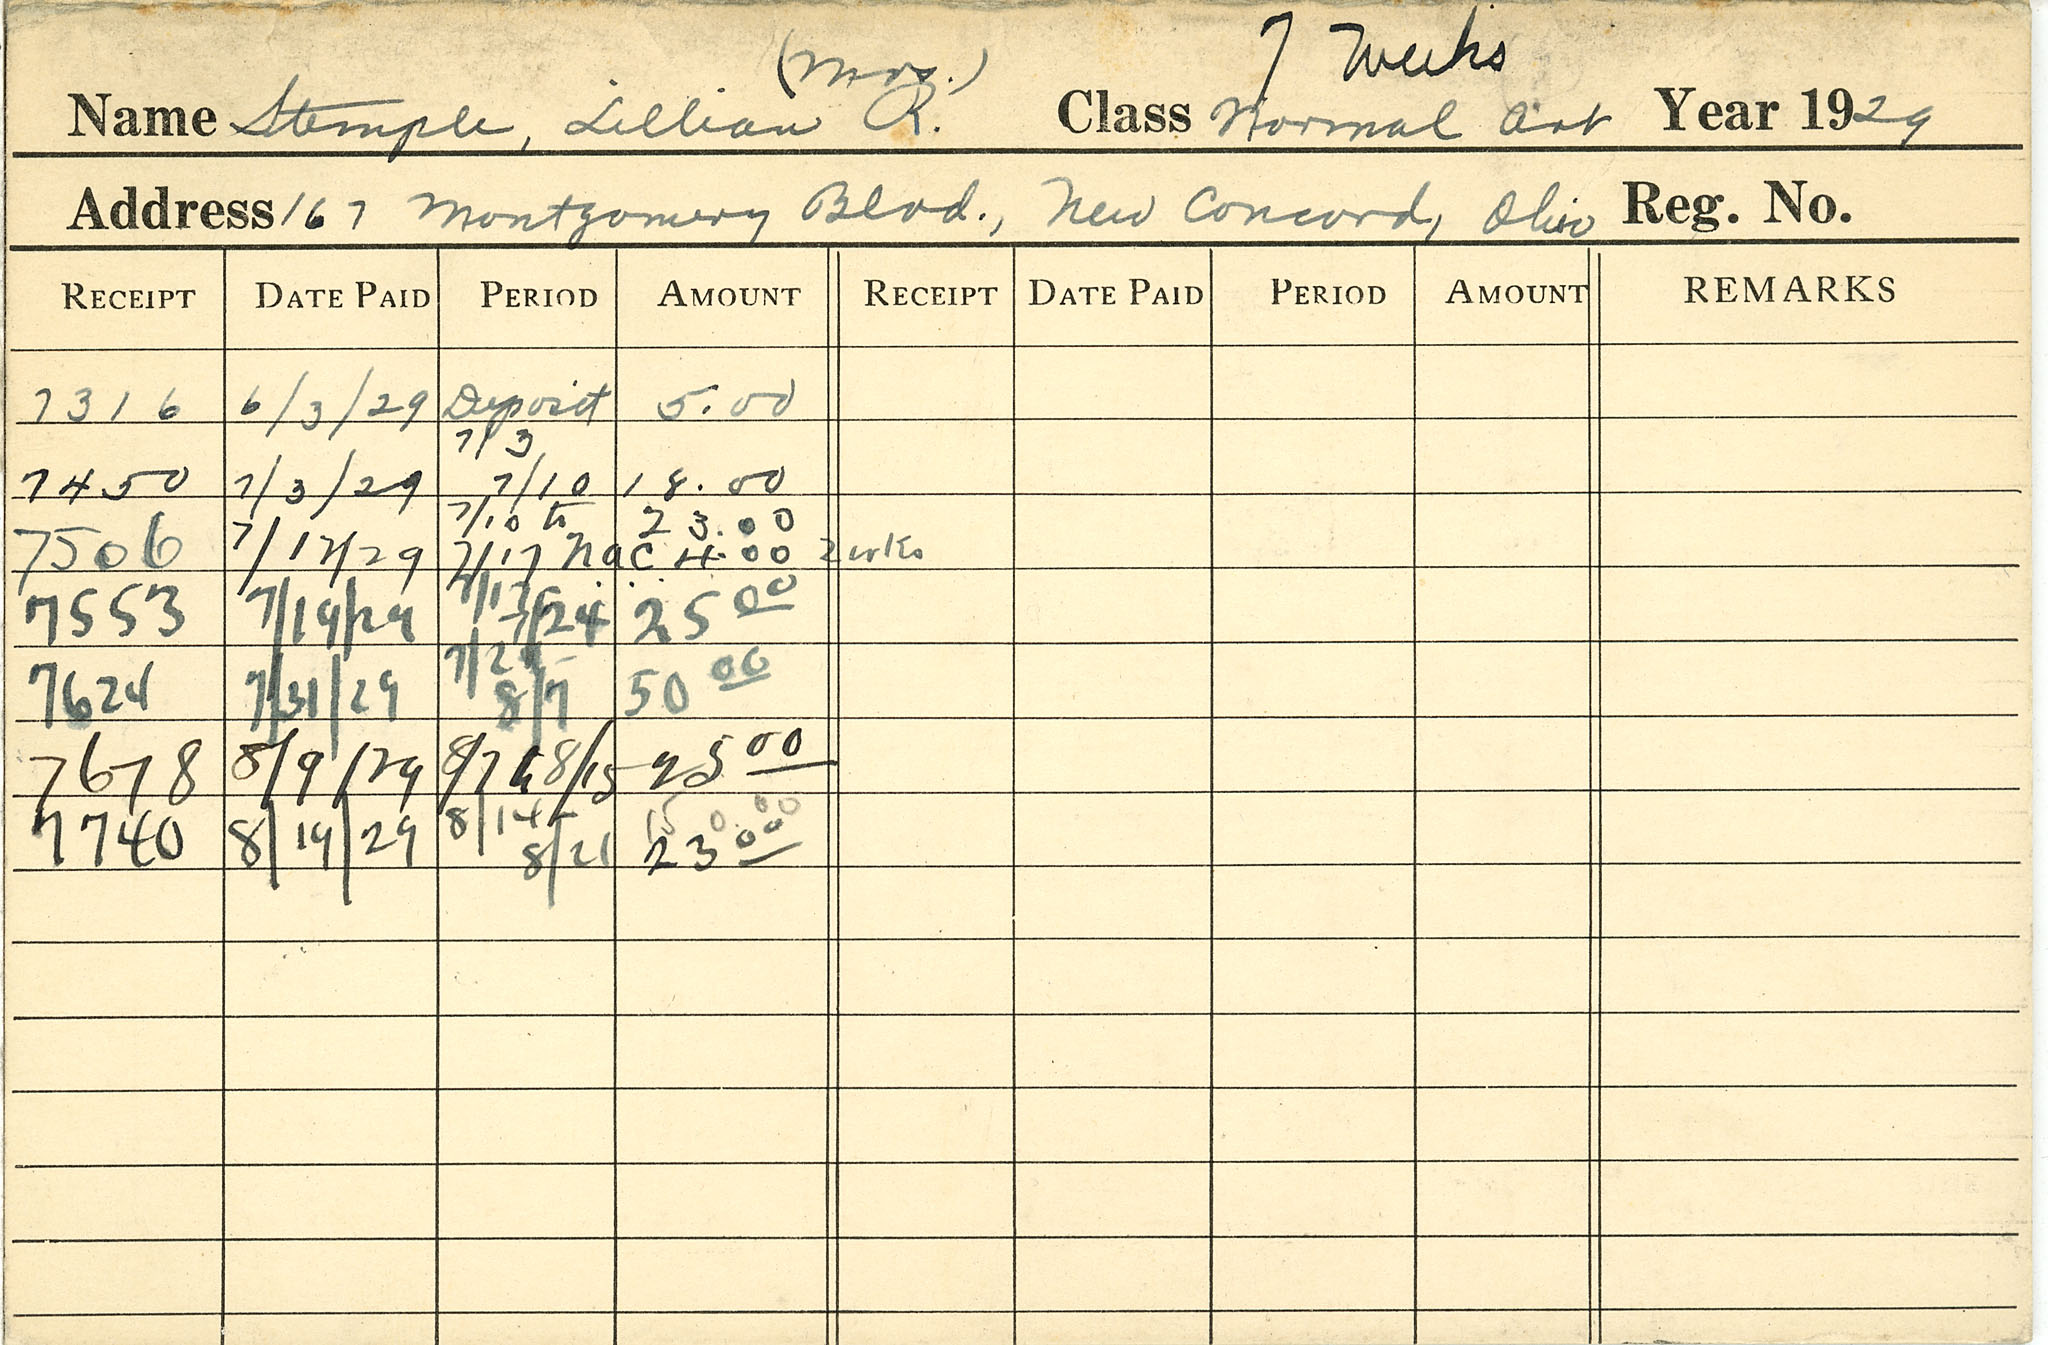 (Mrs.) 7 Weeks
Name Stemple, Lillian R. Class Normal Art Year 1929
Address 167 Montgomery Blvd., New Concord, Ohio Reg. No.
RECEIPT DATE PAID PERIOD AMOUNT RECEIPT DATE PAID PERIOD AMOUNT REMARKS
7316 6/3/29 Deposit 5.00
7/3
7450 7/3/29 7/10 18.00
7/10 to 23.00
7506 7/12/29 7/17 nac 4.00 2 wks
7/17
7553 7/19/29 7/24 25 00
7/24
7624 7/31/29 8/7 50 00
7678 8/9/29 8/7 to 8/15 25 00
8/14 15 0.00
7740 8/19/29 8/21 23 00